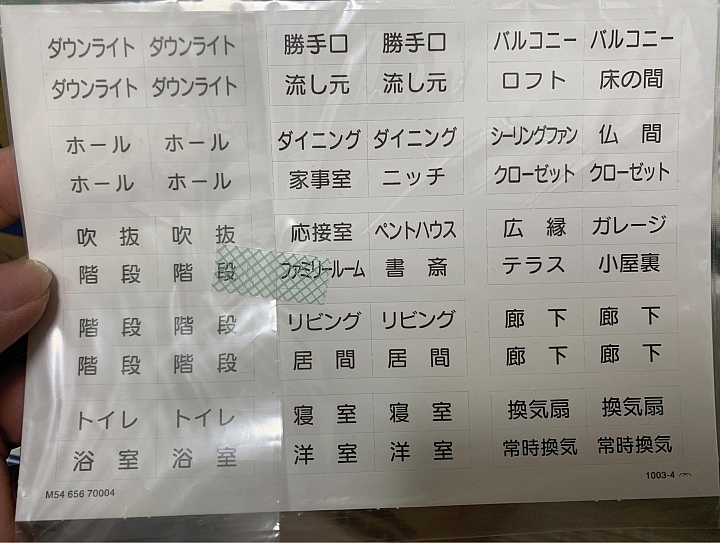 ダウンライト ダウンライト 勝手口 勝手口 バルコニー バルコニー
ダウンライト ダウンライト 流し元 流し元 ロフト 床の間
ホール ホール ダイニング ダイニング シーリングファン 仏間
ホール ホール 家事室 ニッチ クローゼット クローゼット
吹抜 吹抜 応接室 ペントハウス 広縁 ガレージ
階段 階段 ファミリールーム 書斎 テラス 小屋裏
階段 階段 リビング リビング 廊下 廊下
階段 階段 居間 居間 廊下 廊下
トイレ トイレ 寝室 寝室 換気扇 換気扇
浴室 浴室 洋室 洋室 常時換気 常時換気
M54 656 70004 1003-4